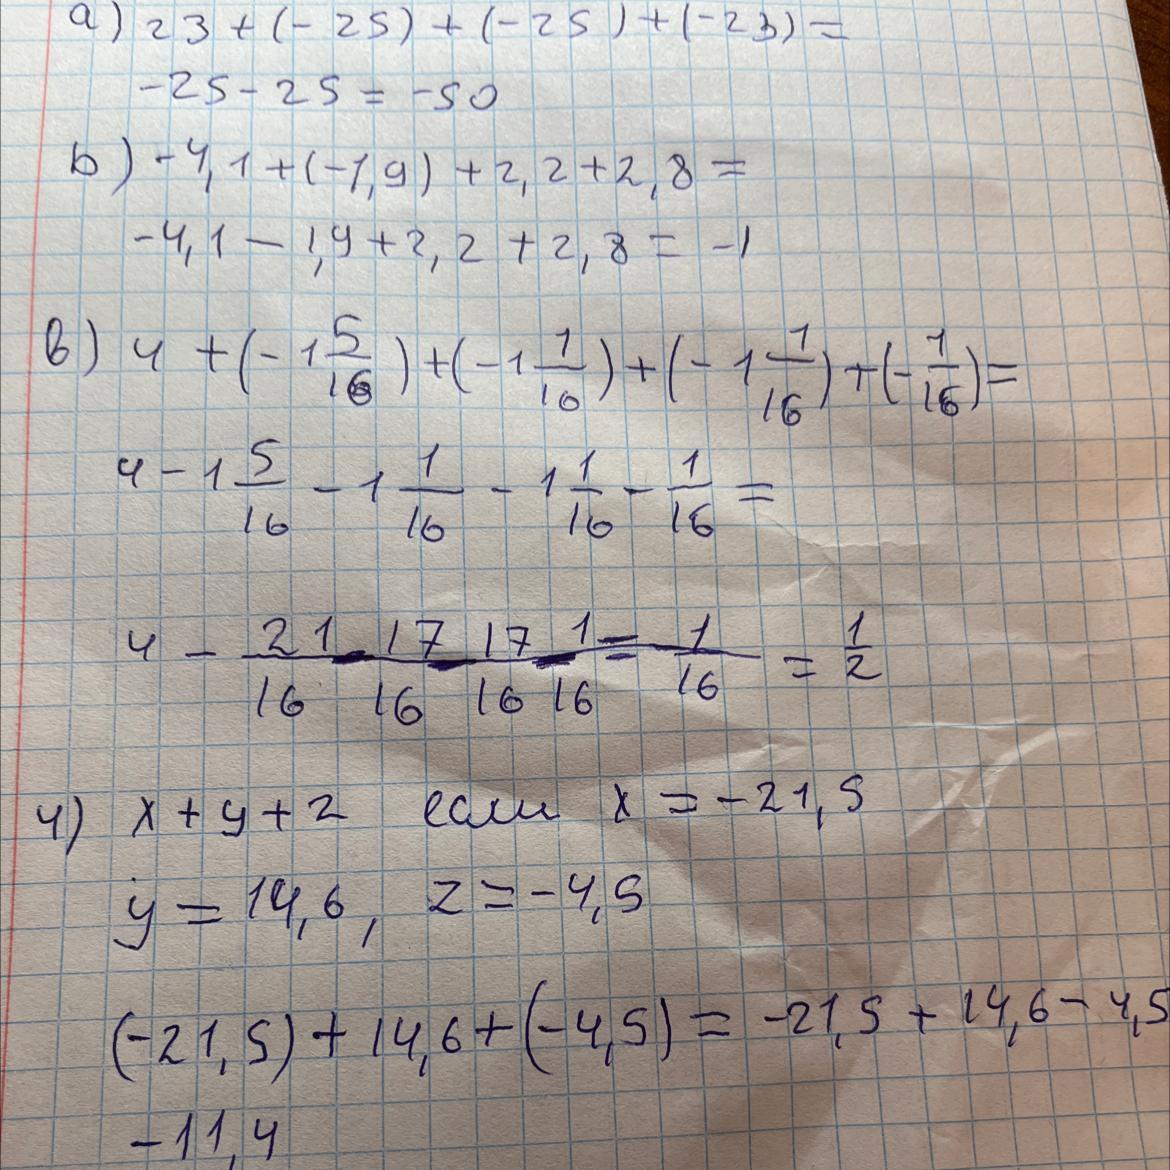 а) 23 + (- 25) + (- 25) + (-23) =
-25 - 25 = -50
b) -4,1 + (-1,9) + 2,2 + 2,8 =
-4,1 - 1,9 + 2,2 + 2,8 = -1
в) 4 + (-1 5/16) + (-1 1/16) + (-1 1/16) + (-1/16) =
4 - 1 5/16 - 1 1/16 - 1 1/16 - 1/16 =
4 - 21/16 - 17/16 - 17/16 - 1/16 = 1/16 = 1/2
4) x + y + z если x = -21,5
y = 14,6, z = -4,5
(-21,5) + 14,6 + (-4,5) = -21,5 + 14,6 - 4,5
-11,4